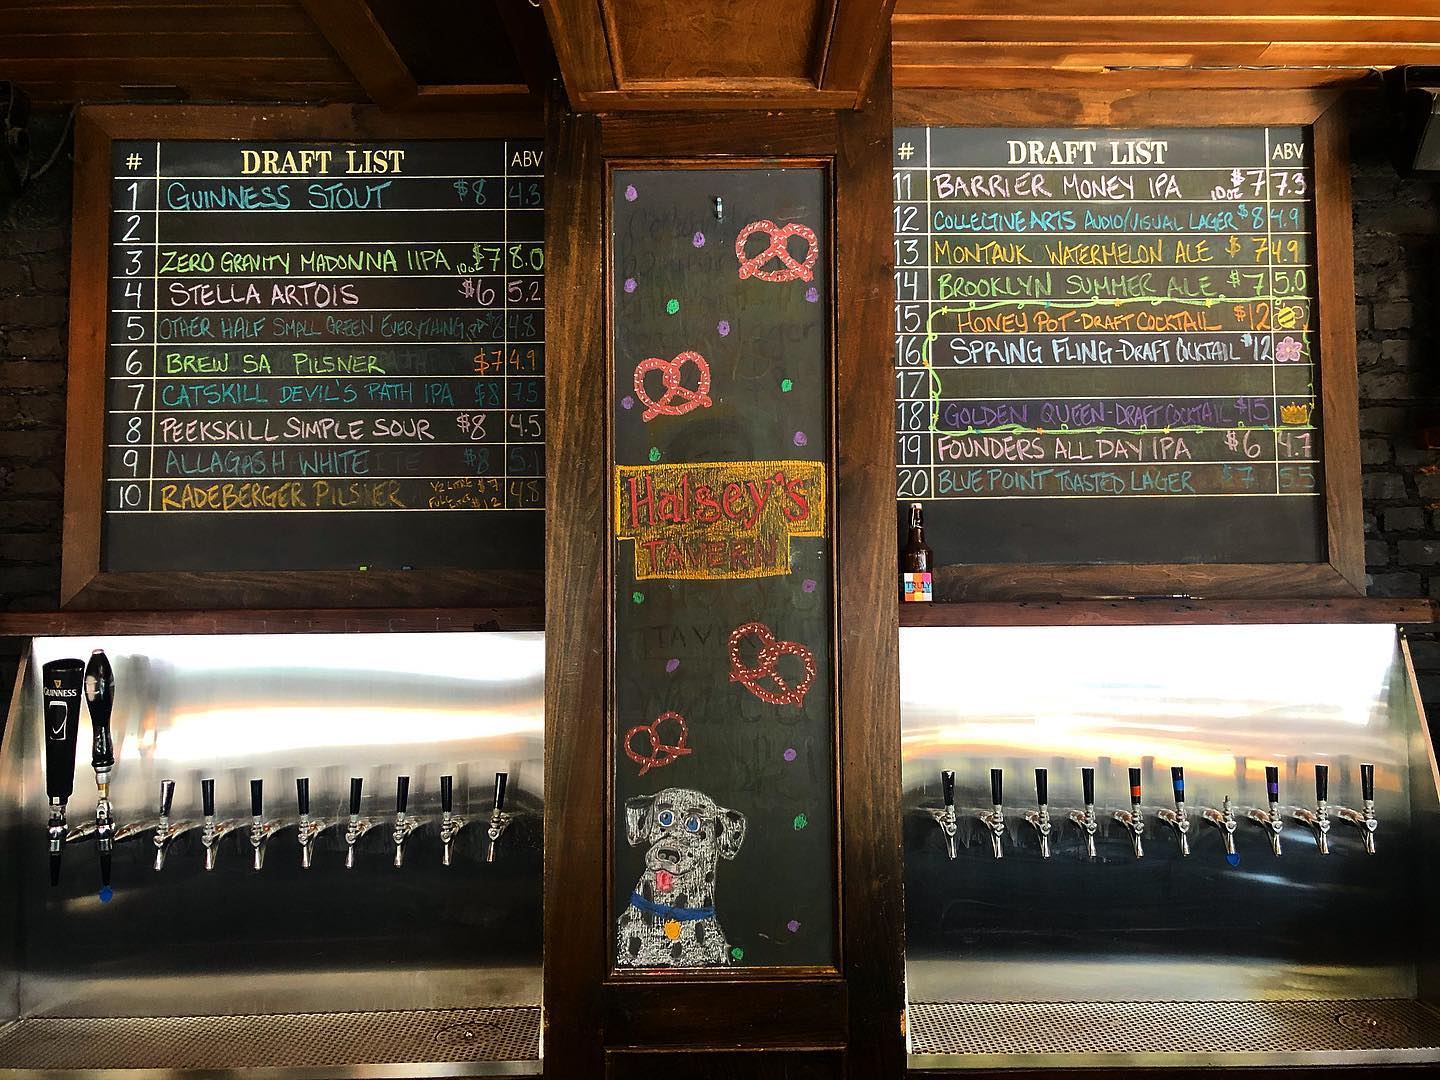 # DRAFT LIST ABV
1 GUINNESS STOUT $8 4.3
2
3 ZERO GRAVITY MADONNA IIPA 10oz $7 8.0
4 STELLA ARTOIS $6 5.2
5 OTHER HALF SMALL GREEN EVERYTHING $8 4.8
6 BREW SA PILSNER $7 4.9
7 CATSKILL DEVIL'S PATH IPA $8 7.5
8 PEEKSKILL SIMPLE SOUR $8 4.5
9 ALLAGASH WHITE $8 5.1
10 RADEBERGER PILSNER 1/2 LITRE $7 4.8
FULL $12
# DRAFT LIST ABV
11 BARRIER MONEY IPA 10oz $7 7.3
12 COLLECTIVE ARTS AUDIO/VISUAL LAGER $8 4.9
13 MONTAUK WATERMELON ALE $7 4.9
14 BROOKLYN SUMMER ALE $7 5.0
15 HONEY POT-DRAFT COCKTAIL $12
16 SPRING FLING-DRAFT COCKTAIL $12
17
18 GOLDEN QUEEN-DRAFT COCKTAIL $15
19 FOUNDERS ALL DAY IPA $6 4.7
20 BLUE POINT TOASTED LAGER $7 5.5
Halsey's
TAVERN
TRULY
GUINNESS